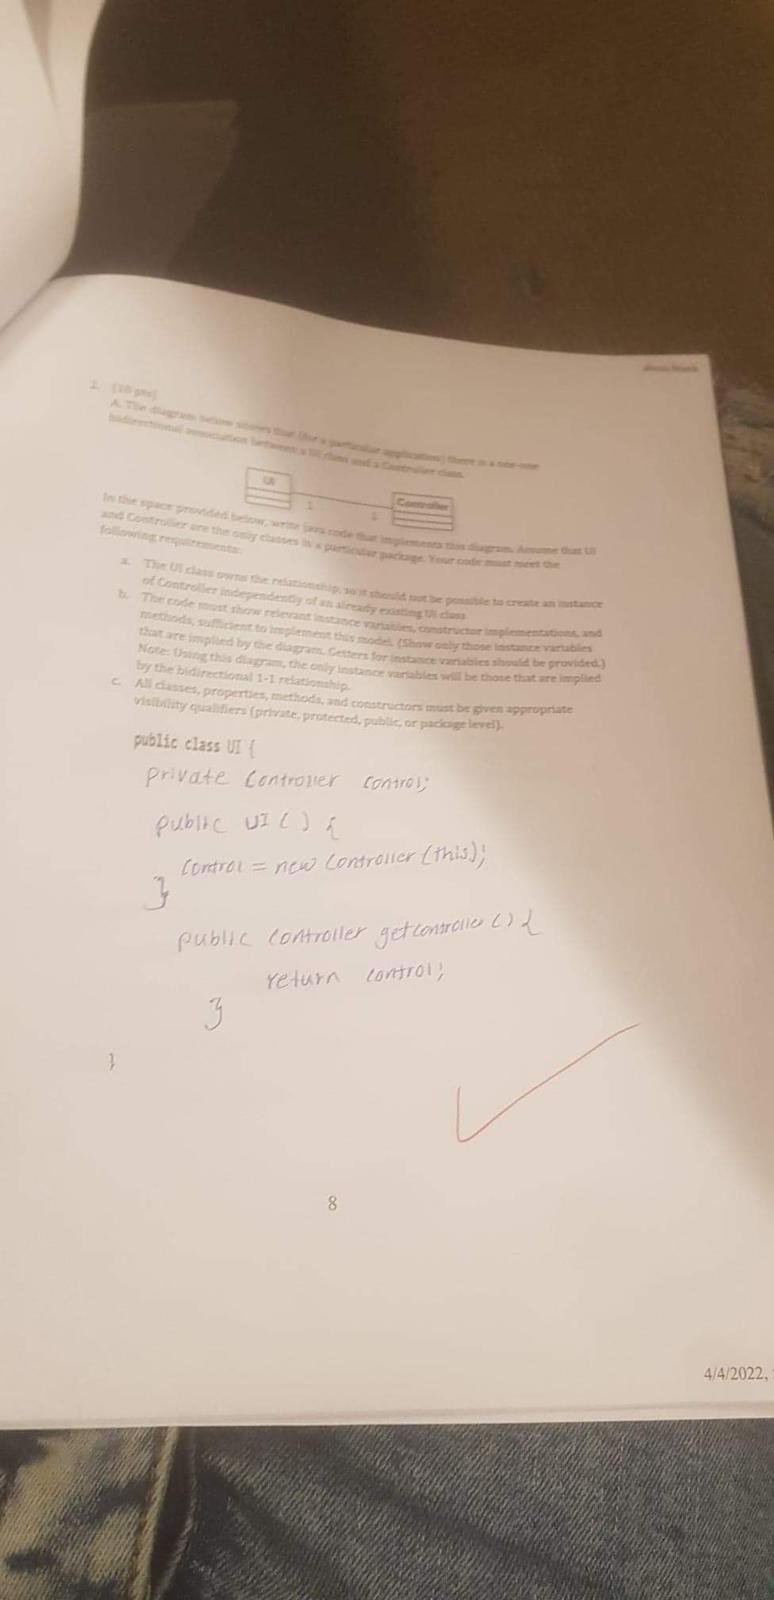 2. (10 pts)
A. The diagram below shows that (for a particular application) there is a one-one
bidirectional association between a UI class and a Controller class.
UI
Controller
1
1
In the space provided below, write java code that implements this diagram. Assume that UI
and Controller are the only classes in a particular package. Your code must meet the
following requirements:
a. The UI class owns the relationship, so it should not be possible to create an instance
of Controller independently of an already existing UI class
b. The code must show relevant instance variables, constructor implementations, and
methods, sufficient to implement this model. (Show only those instance variables
that are implied by the diagram. Getters for instance variables should be provided.)
Note: Using this diagram, the only instance variables will be those that are implied
by the bidirectional 1-1 relationship.
c. All classes, properties, methods, and constructors must be given appropriate
visibility qualifiers (private, protected, public, or package level).
public class UI {
private Controller control;
public UI () {
control = new Controller (this);
}
public Controller getController () {
return control;
}
}
8
4/4/2022,